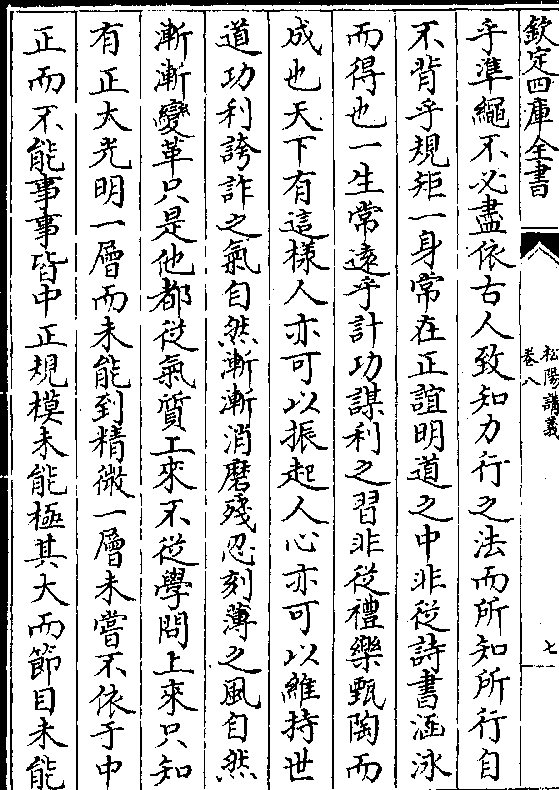 欽定四庫全書
松陽講義
卷八
七
乎準繩不必盡依古人致知力行之法而所知所行自
不背乎規矩一身常在正誼明道之中非從詩書涵泳
而得也一生常遠乎計功謀利之習非從禮樂甄陶而
成也天下有這樣人亦可以振起人心亦可以維持世
道功利誇詐之氣自然漸漸消磨殘忍刻薄之風自然
漸漸變革只是他都從氣質上來不從學問上來只知
有正大光明一層而未能到精微一層未嘗不依于中
正而不能事事皆中正規模未能極其大而節目未能